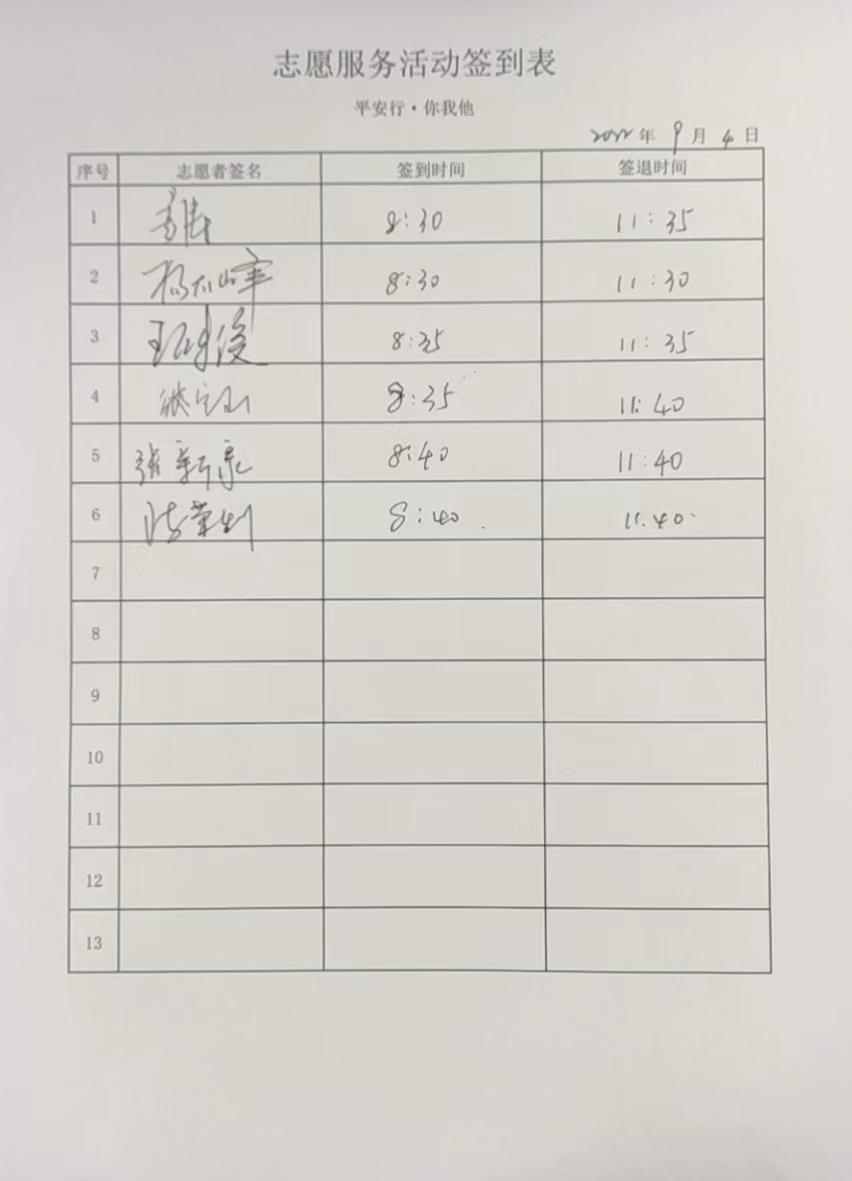 志愿服务活动签到表
平安行·你我他
2022年9月4日
序号 志愿者签名 签到时间 签退时间
1 8:30 11:35
2 8:30 11:30
3 8:35 11:35
4 8:35 11:40
5 张新泉 8:40 11:40
6 8:40. 11.40.
7
8
9
10
11
12
13